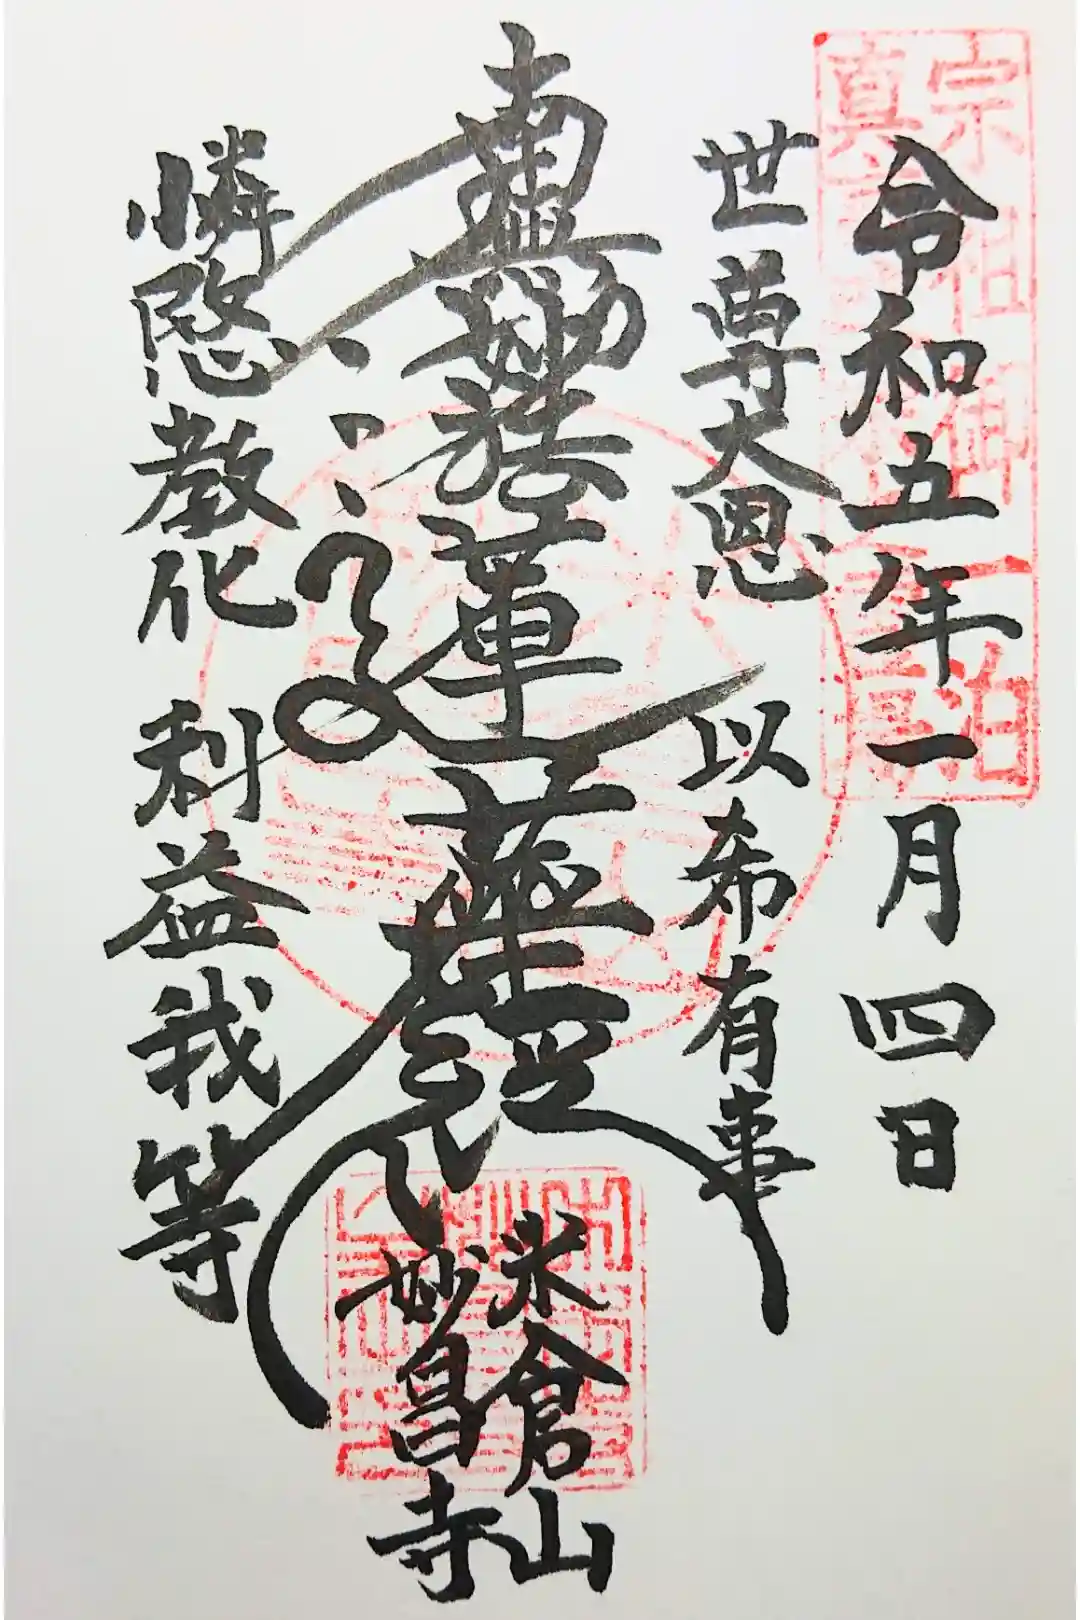 宗祖御一泊
令和五年一月四日
世尊大恩 以希有事
南無妙法蓮華経
憐愍教化 利益我等
米倉山
妙昌寺